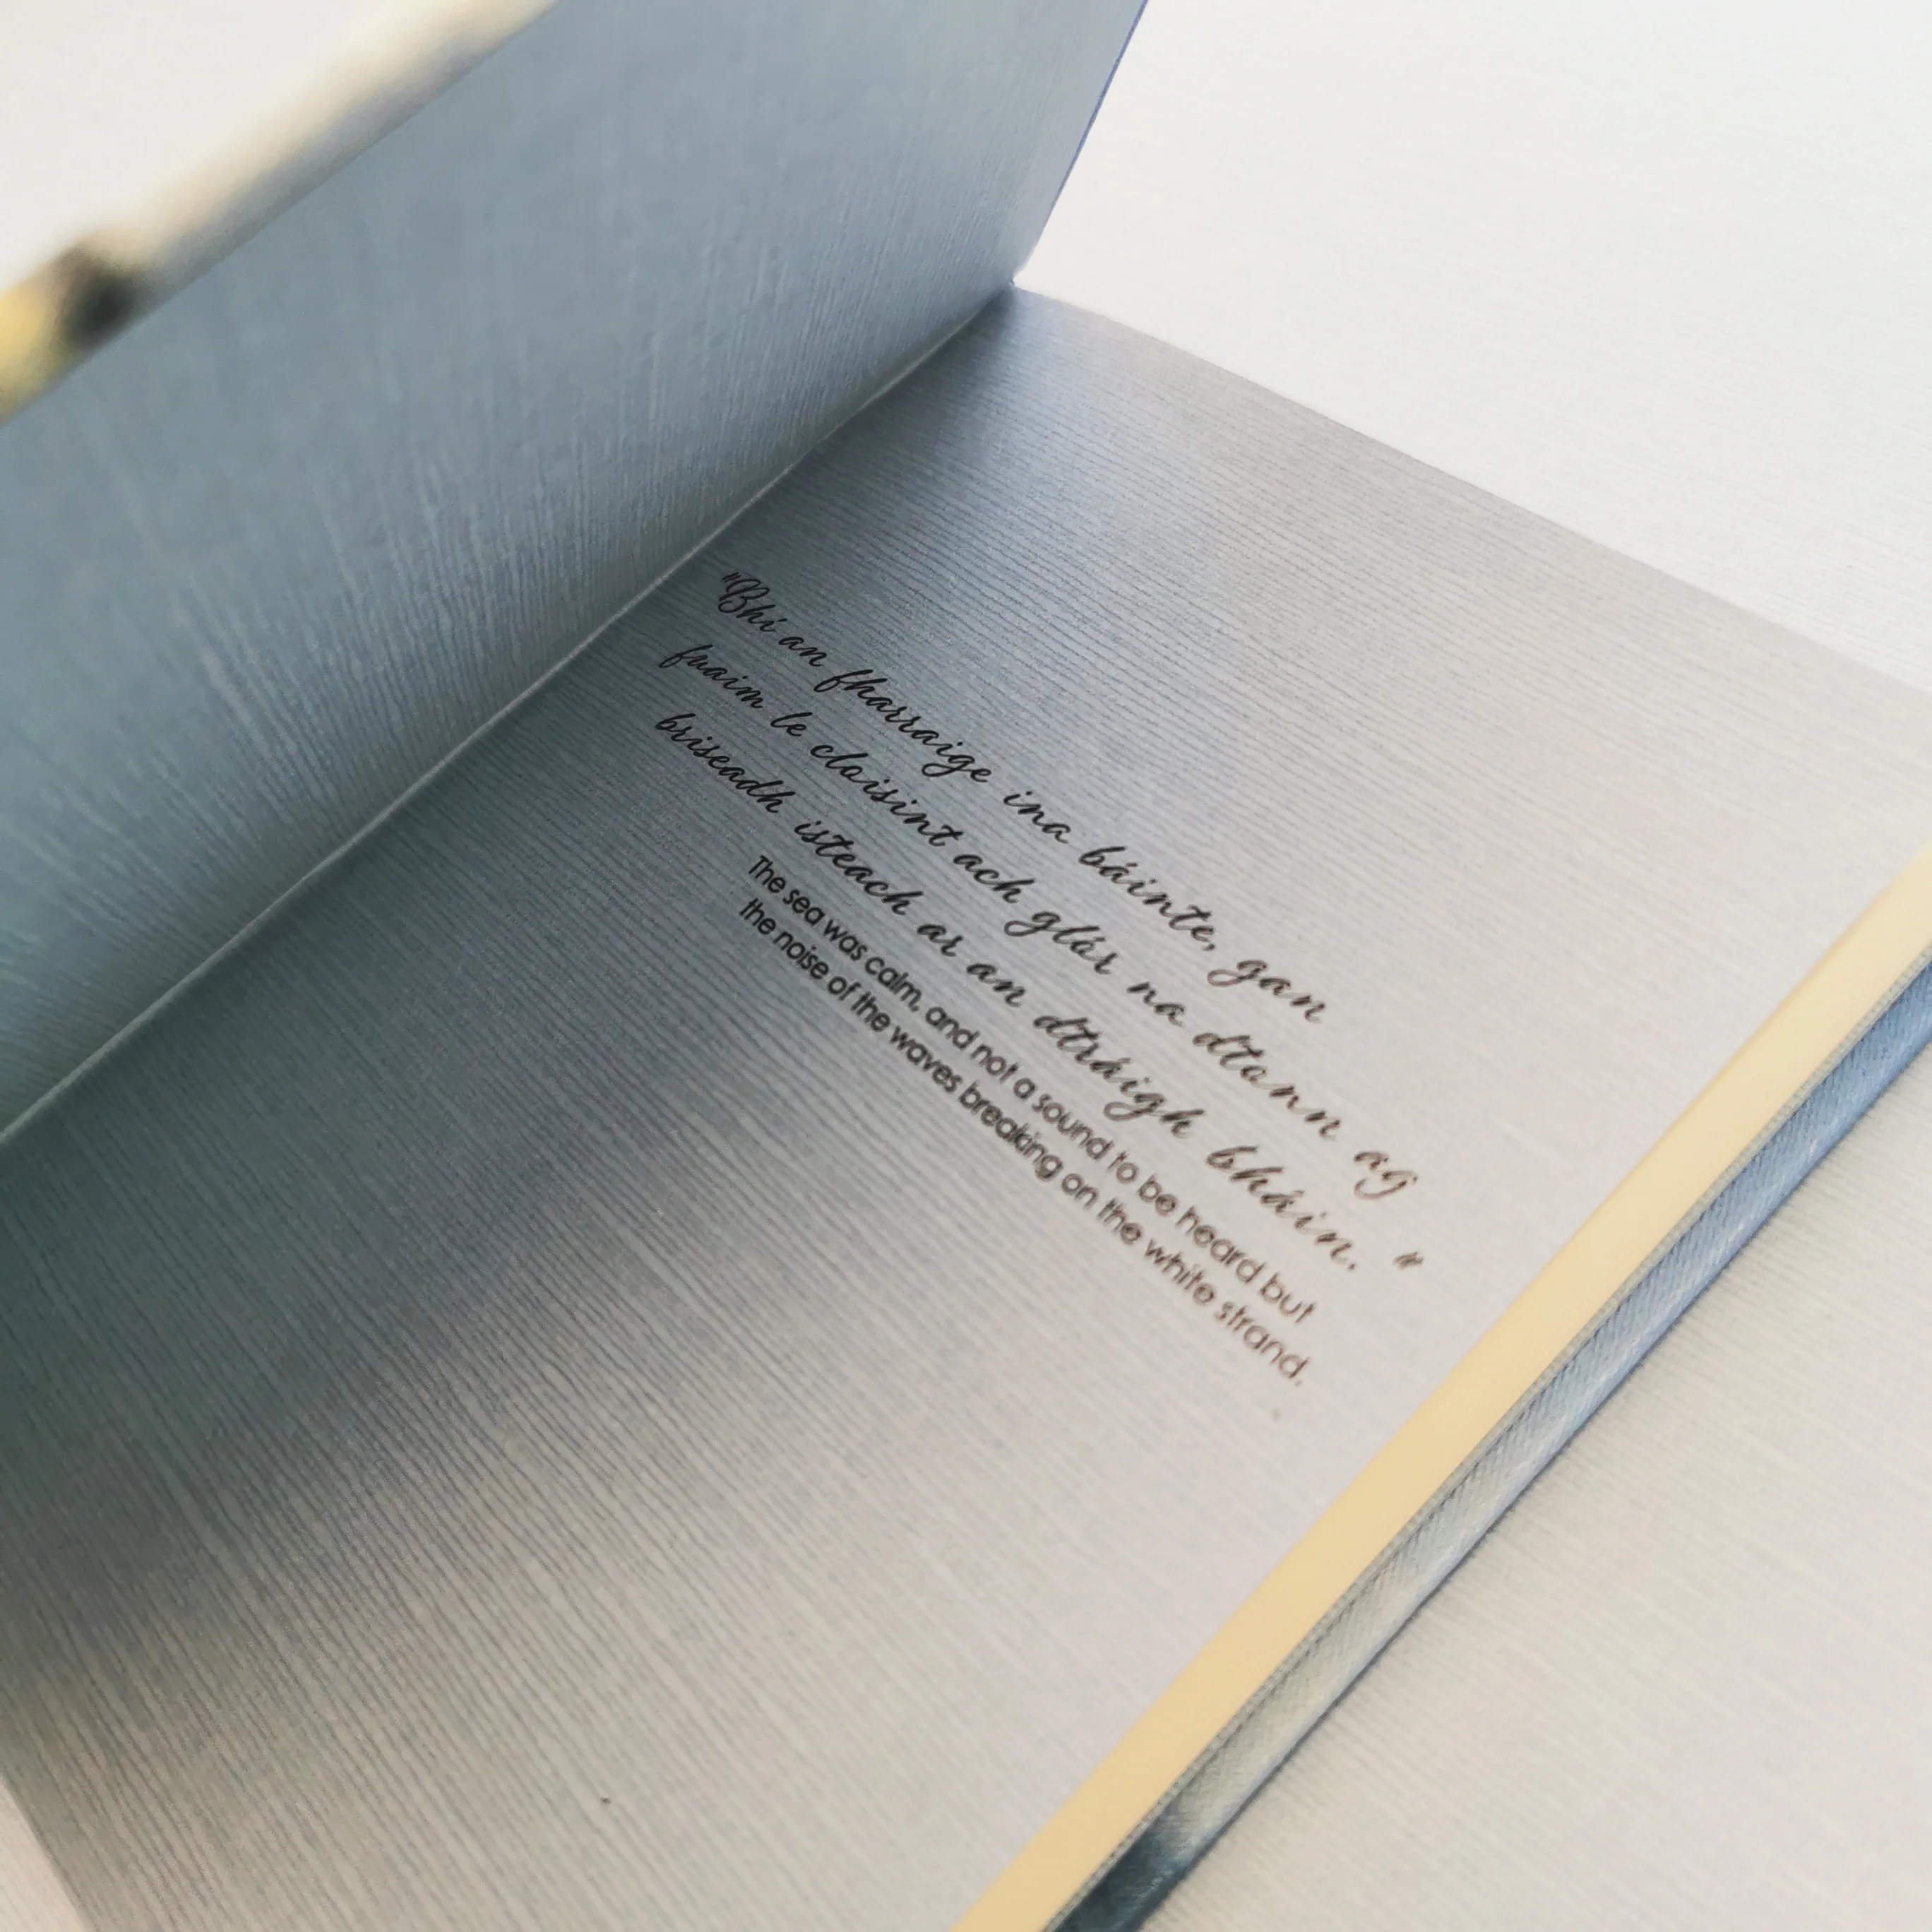 "Bhí an fharraige ina báinte, gan
fuaim le cloisint ach glór na dtonn ag
briseadh isteach ar an dtráigh bháin."
The sea was calm, and not a sound to be heard but
the noise of the waves breaking on the white strand.